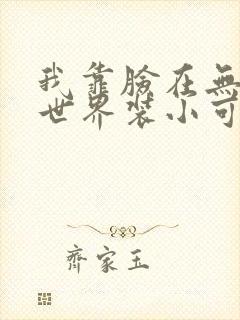 我靠臉在無
世界裝小可
齊家玉